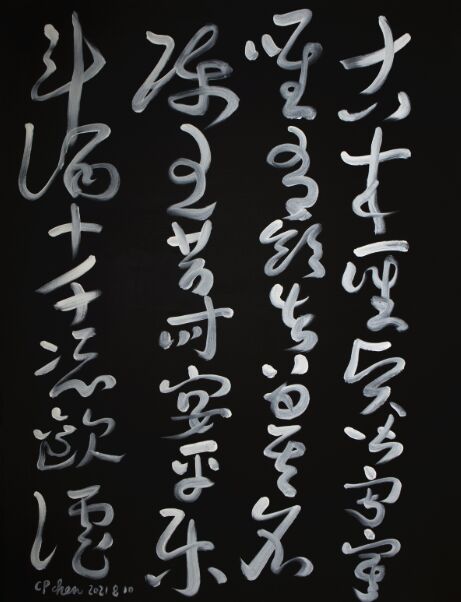 古來聖賢皆寂寞
惟有飲者留其名
陳王昔時宴平樂
斗酒十千恣歡謔
CP chen 2021 8 10